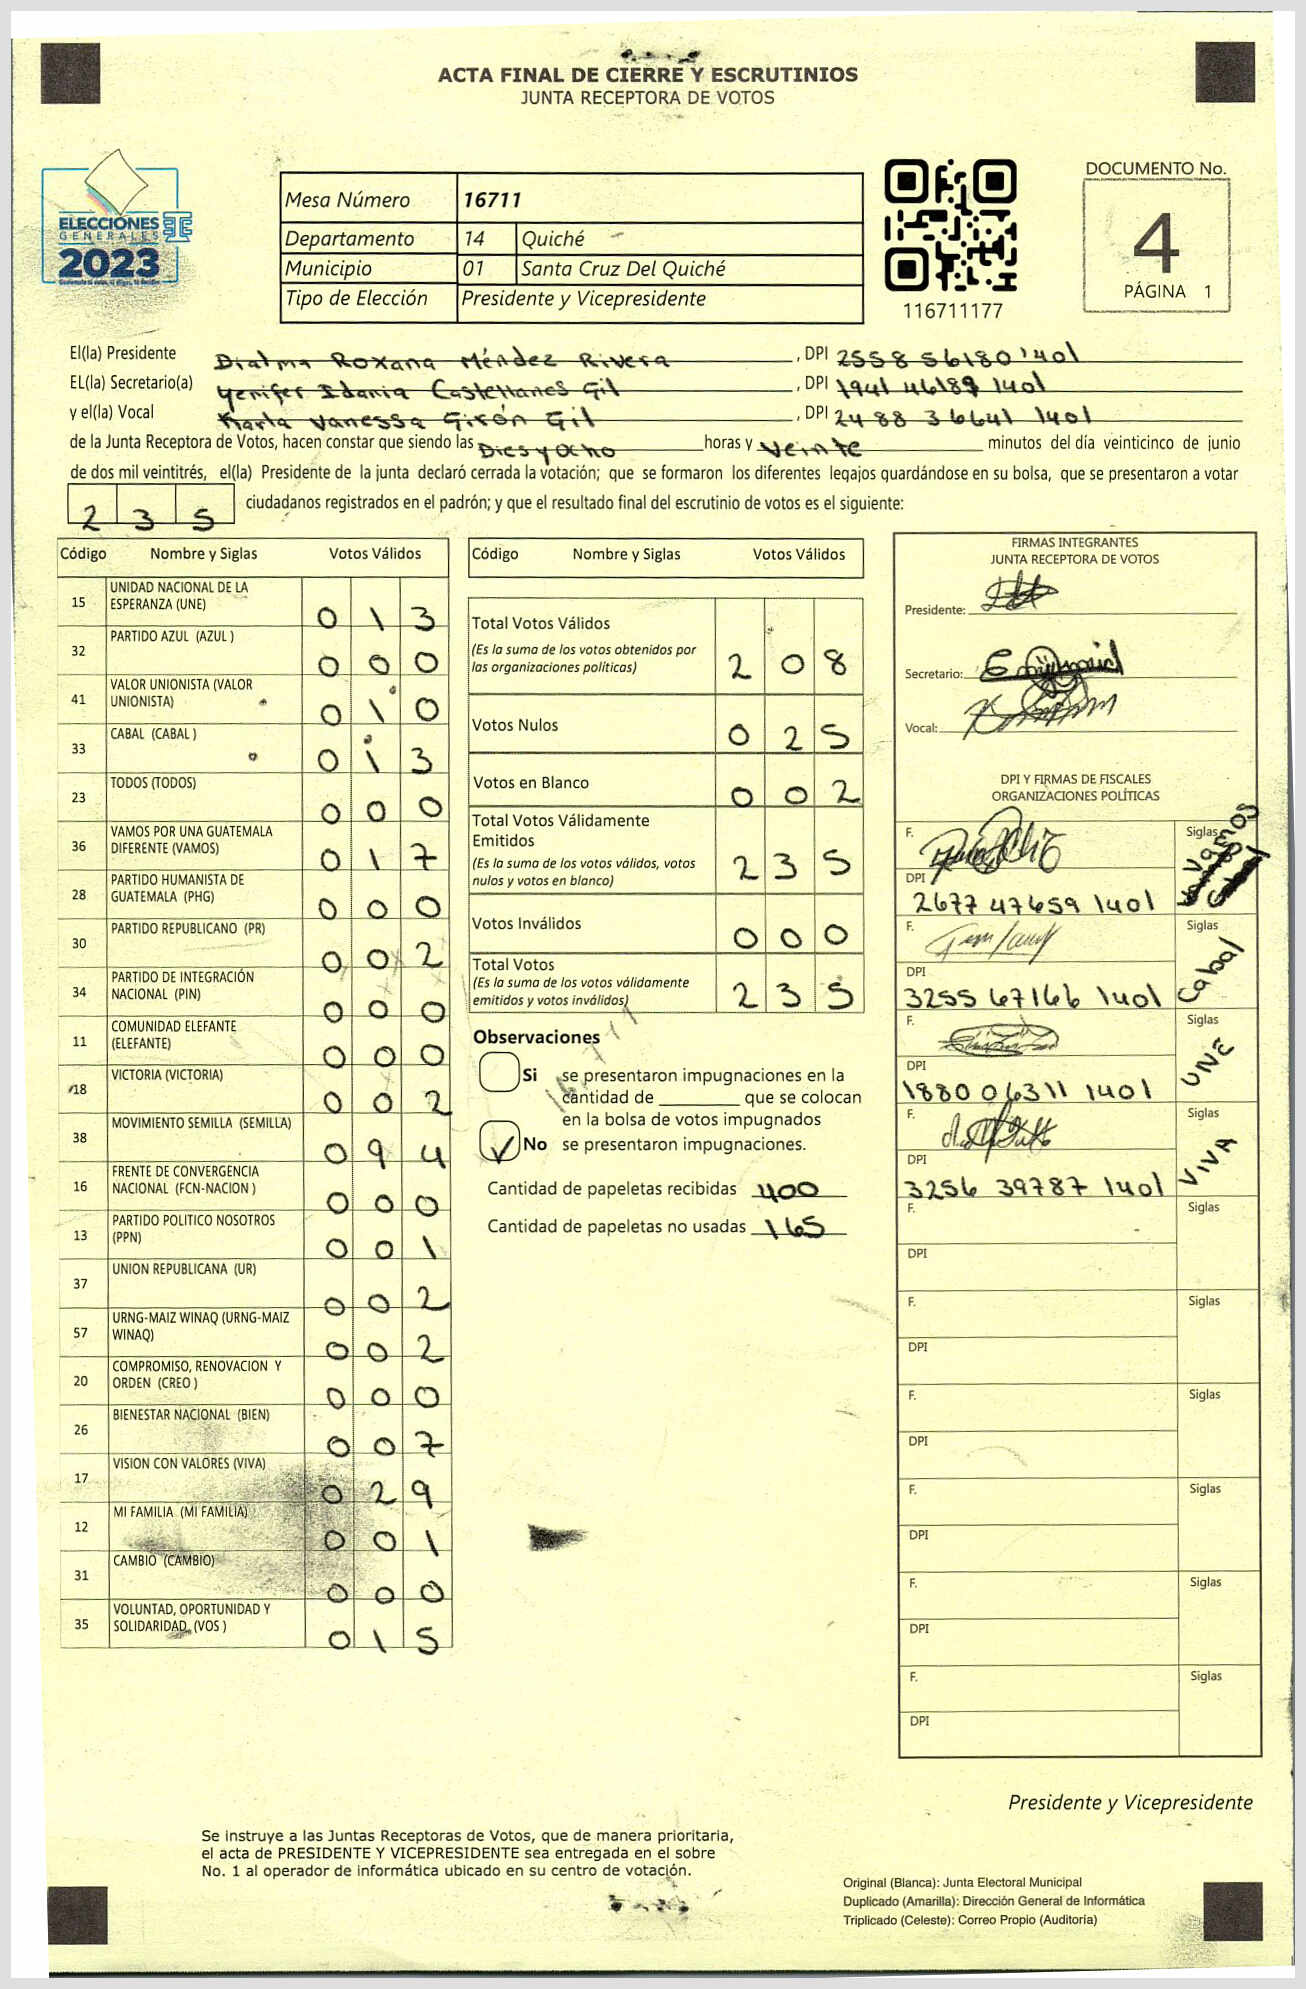 ACTA FINAL DE CIERRE Y ESCRUTINIOS
JUNTA RECEPTORA DE VOTOS
ELECCIONES
GENERALES
2023
TSE
Mesa Número 16711
Departamento 14 Quiché
Municipio 01 Santa Cruz Del Quiché
Tipo de Elección Presidente y Vicepresidente
116711177
DOCUMENTO No.
4
PÁGINA 1
El(la) Presidente Dialma Roxana Méndez Rivera, DPI 2558 56180 1401
EL(la) Secretario(a) Yenifer Idania Castellanos Gil, DPI 1941 46189 1401
y el(la) Vocal Karla Vanessa Girón Gil, DPI 2488 36641 1401
de la Junta Receptora de Votos, hacen constar que siendo las Diesyocho horas y veinte minutos del día veinticinco de junio
de dos mil veintitrés, el(la) Presidente de la junta declaró cerrada la votación; que se formaron los diferentes legajos guardándose en su bolsa, que se presentaron a votar
235 ciudadanos registrados en el padrón; y que el resultado final del escrutinio de votos es el siguiente:
Código Nombre y Siglas Votos Válidos
15 UNIDAD NACIONAL DE LA
ESPERANZA (UNE) 0 1 3
32 PARTIDO AZUL (AZUL ) 0 0 0
41 VALOR UNIONISTA (VALOR
UNIONISTA) 0 1 0
33 CABAL (CABAL ) 0 1 3
23 TODOS (TODOS) 0 0 0
36 VAMOS POR UNA GUATEMALA
DIFERENTE (VAMOS) 0 1 7
28 PARTIDO HUMANISTA DE
GUATEMALA (PHG) 0 0 0
30 PARTIDO REPUBLICANO (PR) 0 0 2
34 PARTIDO DE INTEGRACIÓN
NACIONAL (PIN) 0 0 0
11 COMUNIDAD ELEFANTE
(ELEFANTE) 0 0 0
18 VICTORIA (VICTORIA) 0 0 2
38 MOVIMIENTO SEMILLA (SEMILLA) 0 9 4
16 FRENTE DE CONVERGENCIA
NACIONAL (FCN-NACION ) 0 0 0
13 PARTIDO POLITICO NOSOTROS
(PPN) 0 0 1
37 UNION REPUBLICANA (UR) 0 0 2
57 URNG-MAIZ WINAQ (URNG-MAIZ
WINAQ) 0 0 2
20 COMPROMISO, RENOVACION Y
ORDEN (CREO ) 0 0 0
26 BIENESTAR NACIONAL (BIEN) 0 0 7
17 VISION CON VALORES (VIVA) 0 2 9
12 MI FAMILIA (MI FAMILIA) 0 0 1
31 CAMBIO (CAMBIO) 0 0 0
35 VOLUNTAD, OPORTUNIDAD Y
SOLIDARIDAD (VOS ) 0 1 5
Código Nombre y Siglas Votos Válidos
Total Votos Válidos
(Es la suma de los votos obtenidos por
las organizaciones políticas) 2 0 8
Votos Nulos 0 2 5
Votos en Blanco 0 0 2
Total Votos Válidamente
Emitidos
(Es la suma de los votos válidos, votos
nulos y votos en blanco) 2 3 5
Votos Inválidos 0 0 0
Total Votos
(Es la suma de los votos válidamente
emitidos y votos inválidos) 2 3 5
Observaciones
Si se presentaron impugnaciones en la
cantidad de ________ que se colocan
en la bolsa de votos impugnados
No se presentaron impugnaciones.
Cantidad de papeletas recibidas 400
Cantidad de papeletas no usadas 165
FIRMAS INTEGRANTES
JUNTA RECEPTORA DE VOTOS
Presidente:
Secretario:
Vocal:
DPI Y FIRMAS DE FISCALES
ORGANIZACIONES POLÍTICAS
F. Siglas Vamos
DPI
2677 47659 1401
F. Siglas Cabal
DPI
3255 67166 1401
F. Siglas UNE
DPI
1880 06311 1401
F. Siglas VIVA
DPI
3256 39787 1401
F. Siglas
DPI
F. Siglas
DPI
F. Siglas
DPI
F. Siglas
DPI
F. Siglas
DPI
F. Siglas
DPI
Presidente y Vicepresidente
Se instruye a las Juntas Receptoras de Votos, que de manera prioritaria,
el acta de PRESIDENTE Y VICEPRESIDENTE sea entregada en el sobre
No. 1 al operador de informática ubicado en su centro de votación.
Original (Blanca): Junta Electoral Municipal
Duplicado (Amarilla): Dirección General de Informática
Triplicado (Celeste): Correo Propio (Auditoría)